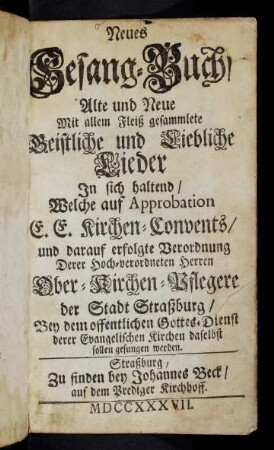 Neues
Gesang-Buch/
Alte und Neue
Mit allem Fleiß gesammlete
Geistliche und Liebliche
Lieder
In sich haltend/
Welche auf Approbation
E. E. Kirchen-Convents/
und darauf erfolgte Verordnung
Derer Hoch-verordneten Herren
Ober-Kirchen-Pflegere
der Stadt Straßburg/
Bey dem offentlichen Gottes-Dienst
derer Evangelischen Kirchen daselbst
sollen gesungen werden.
Straßburg/
Zu finden bey Johannes Beck/
auf dem Prediger Kirchhoff.
MDCCXXXVII.